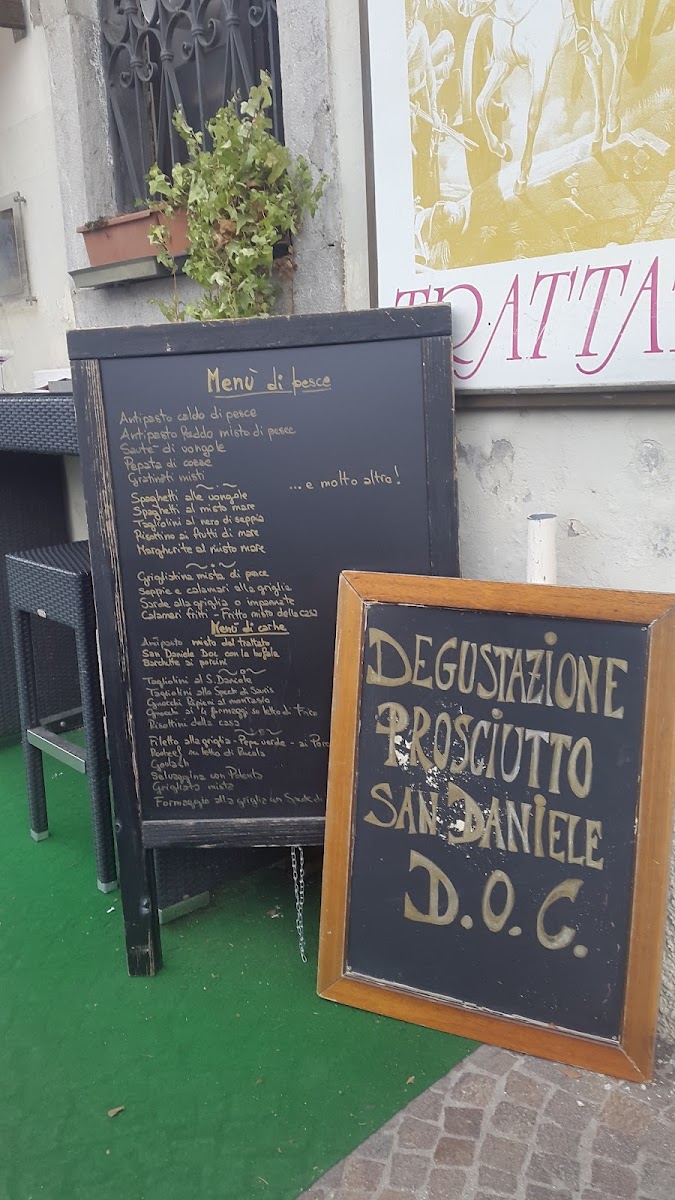 TRATTA
Menù di pesce
Antipasto caldo di pesce
Antipasto freddo misto di pesce
Sautè di vongole
Pepata di cozze
Gratinati misti
... e molto altro!
Spaghetti alle vongole
Spaghetti al misto mare
Tagliolini al nero di seppia
Risottino ai frutti di mare
Margherite al misto mare
Grigliatina mista di pesce
Seppie e calamari alla griglia
Sarde alla griglia o impanate
Calamari fritti - Fritto misto della casa
Menù di carne
Antipasto misto del trattato
San Daniele Doc con la bufala
Barchette ai porcini
Tagliolini al S. Daniele
Tagliolini allo Speck di Sauris
Gnocchi Ripieni al montasio
Gnocchi ai 4 formaggi su letto di Frico
Risottini della casa
Filetto alla griglia - Pepe verde - ai Porc
Rosbeef su letto di Rucola
Goulasch
Selvaggina con Polenta
Grigliata mista
Formaggio alla griglia con Speck di
DEGUSTAZIONE
PROSCIUTTO
SAN DANIELE
D.O.C.